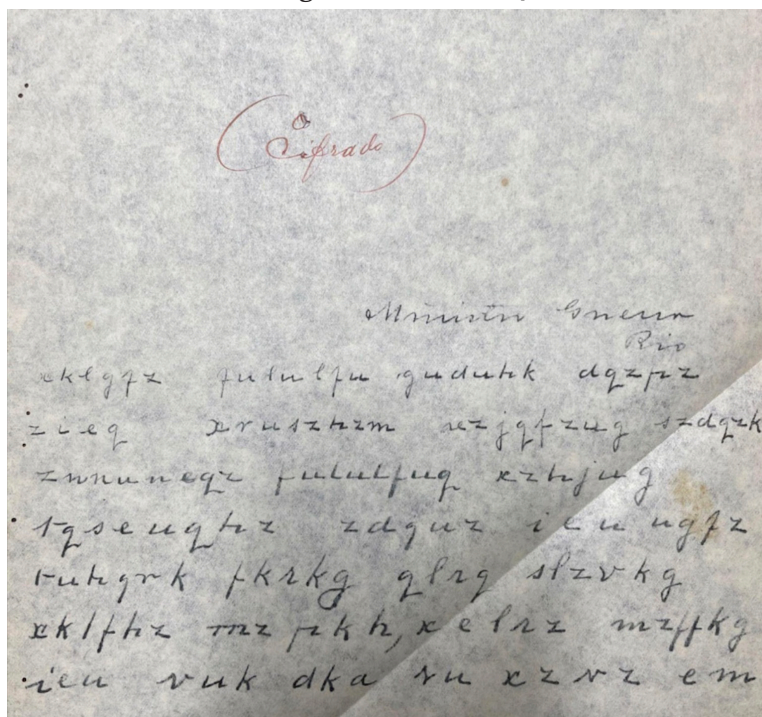 (Cifrado)
Ministro Guerra
Rio
xklgqfz fululfu guduhk dqzpz
zieq xruszhzm xezjqfzug szdqzk
znnuneqz fululfuq xzhjug
tqseuqhz zdquz ieu ugfz
tuhqrk fkrkg qlrq slzvkg
xklfhz mz pkh, xelrz mzffkg
ieu vuk dka ru xzvz em